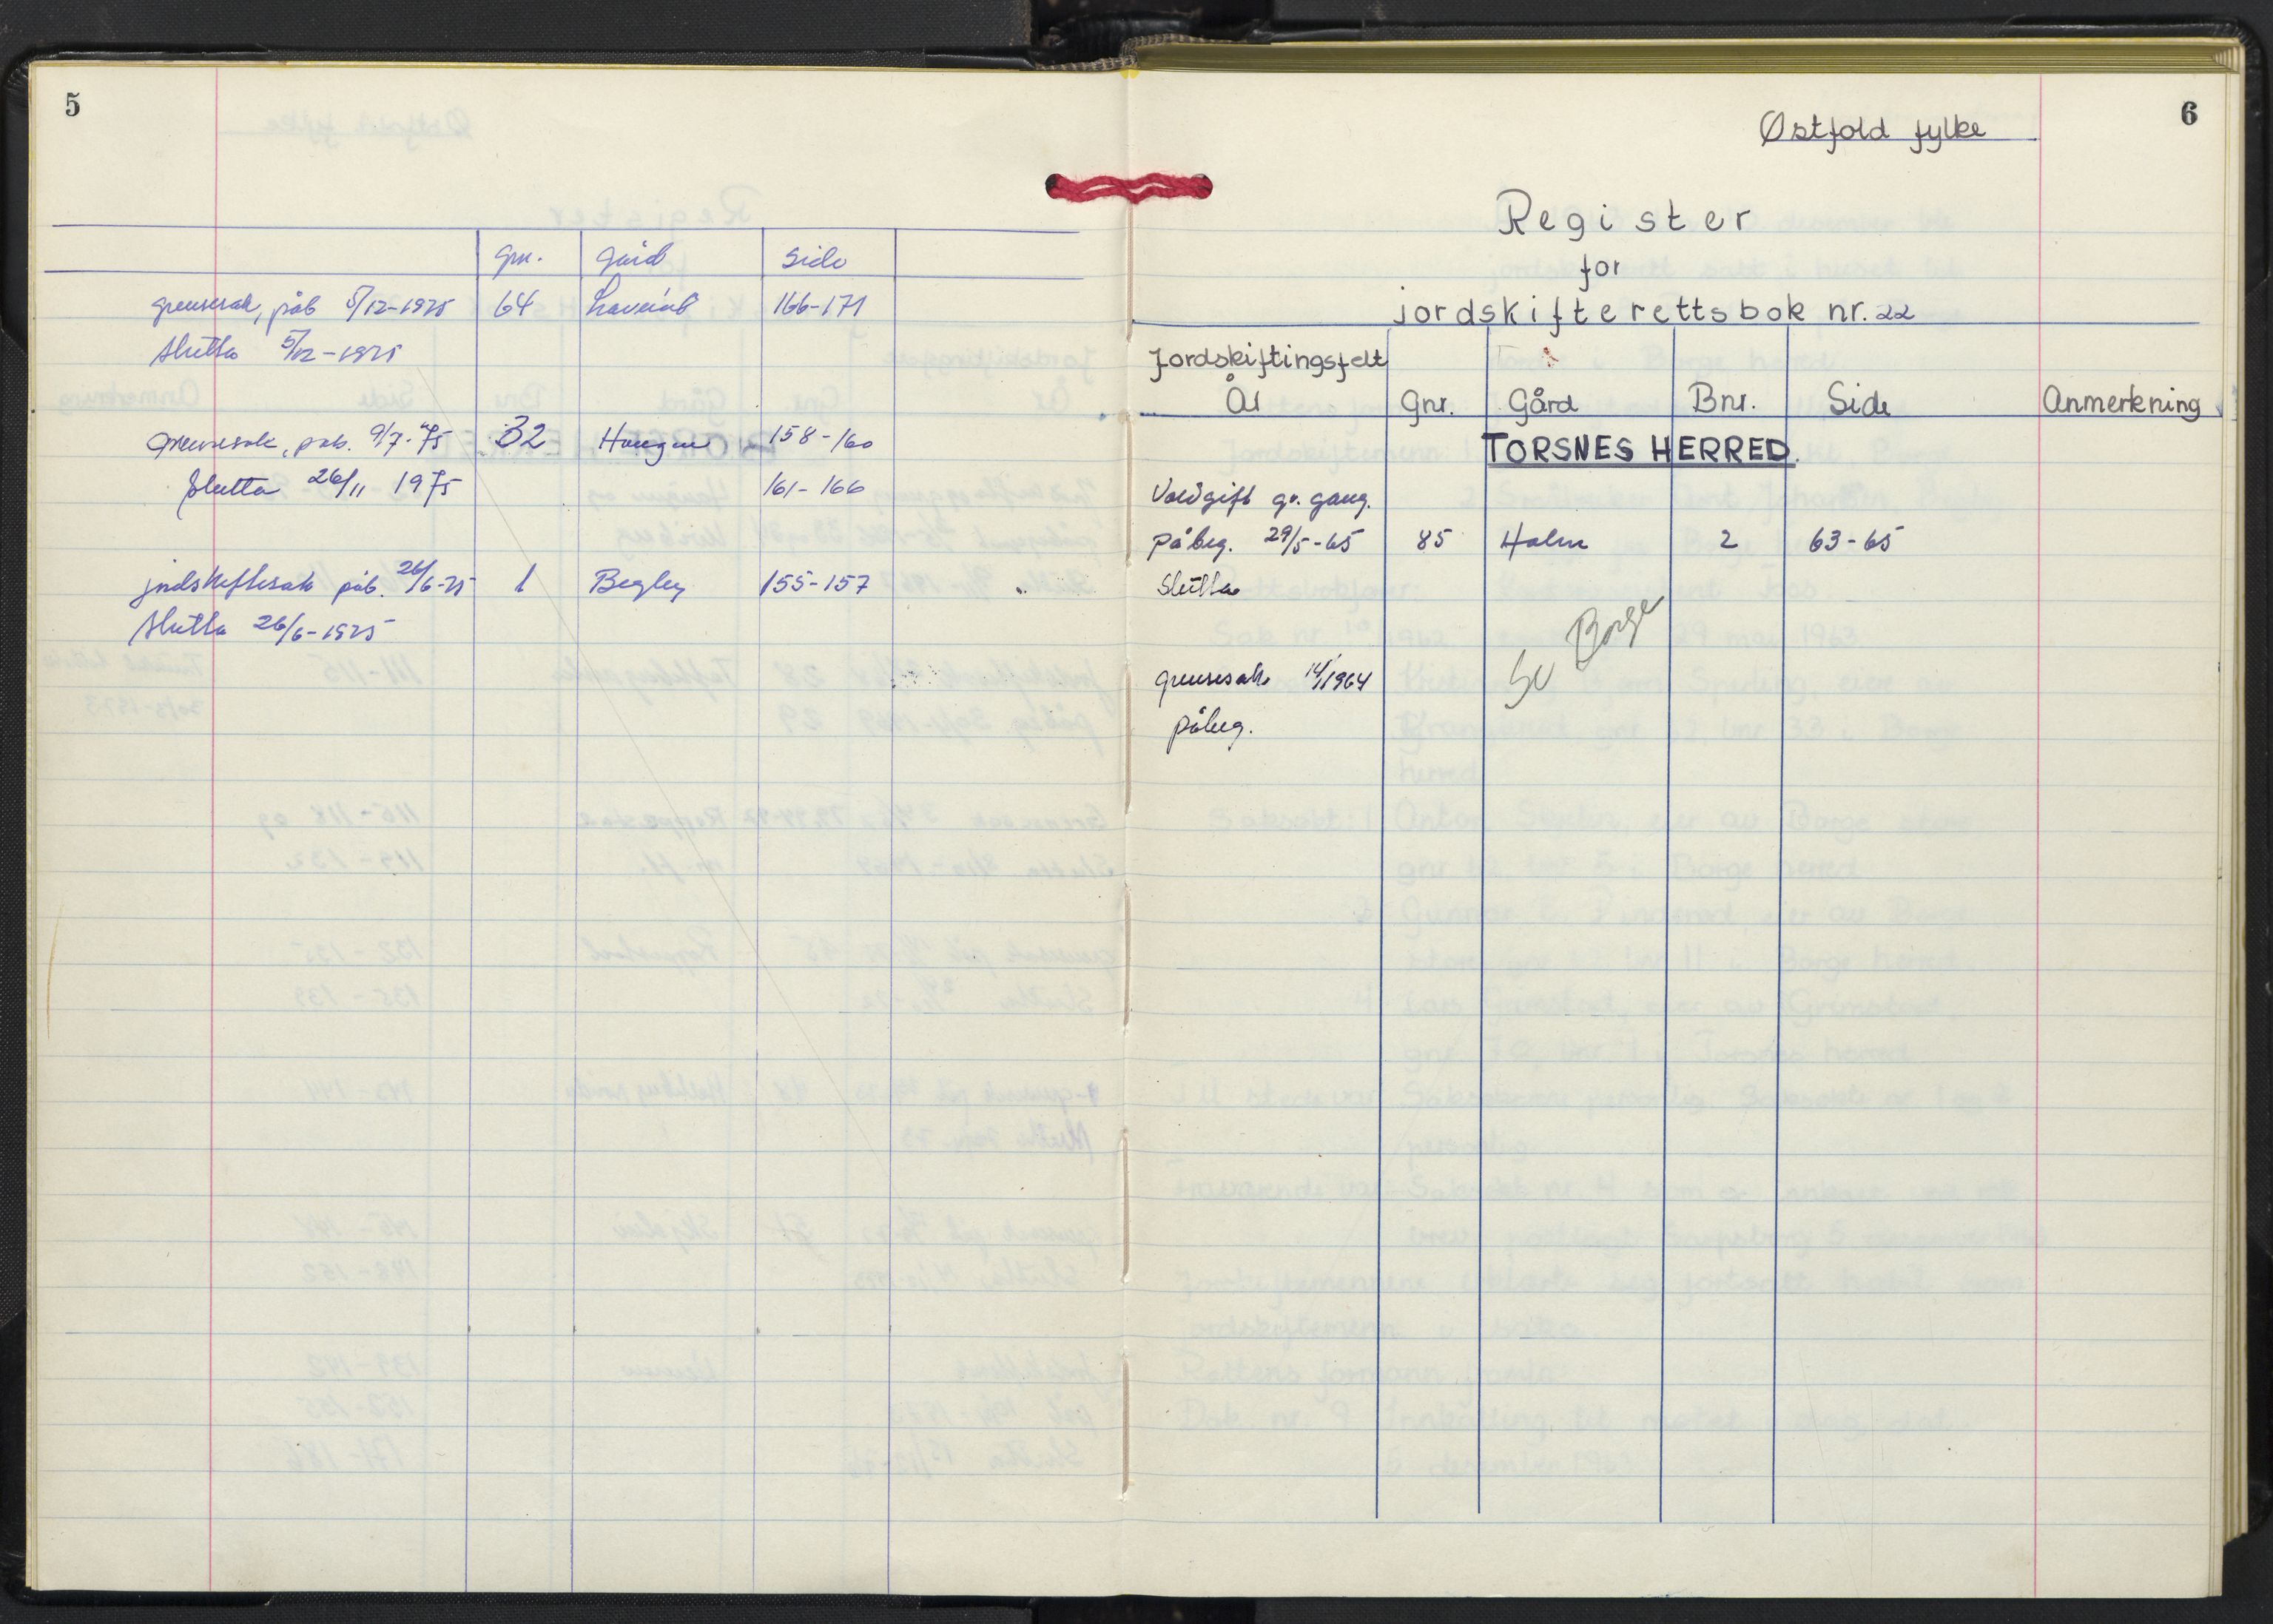 5
gnr. gård Side
grensesak, påb 5/12-1975 64 166-171
Slutta 5/12-1975
Grensesak, pab. 9/7-75 32 Haugen 158-160
Slutta 26/11 1975 161-166
jordskiftesak påb. 26/6-75 1 Begby 155-157
Slutta 26/6-1975
6
Østfold fylke
Register
for
jordskifterettsbok nr. 22
Jordskiftingsfelt
År Gnr. Gård Bnr. Side Anmerkning
TORSNES HERRED.
Voldgift gr. gang.
påbeg. 29/5-65 85 Holm 2 63-65
Slutta
Se Borge
grensesak 1964
påbeg.